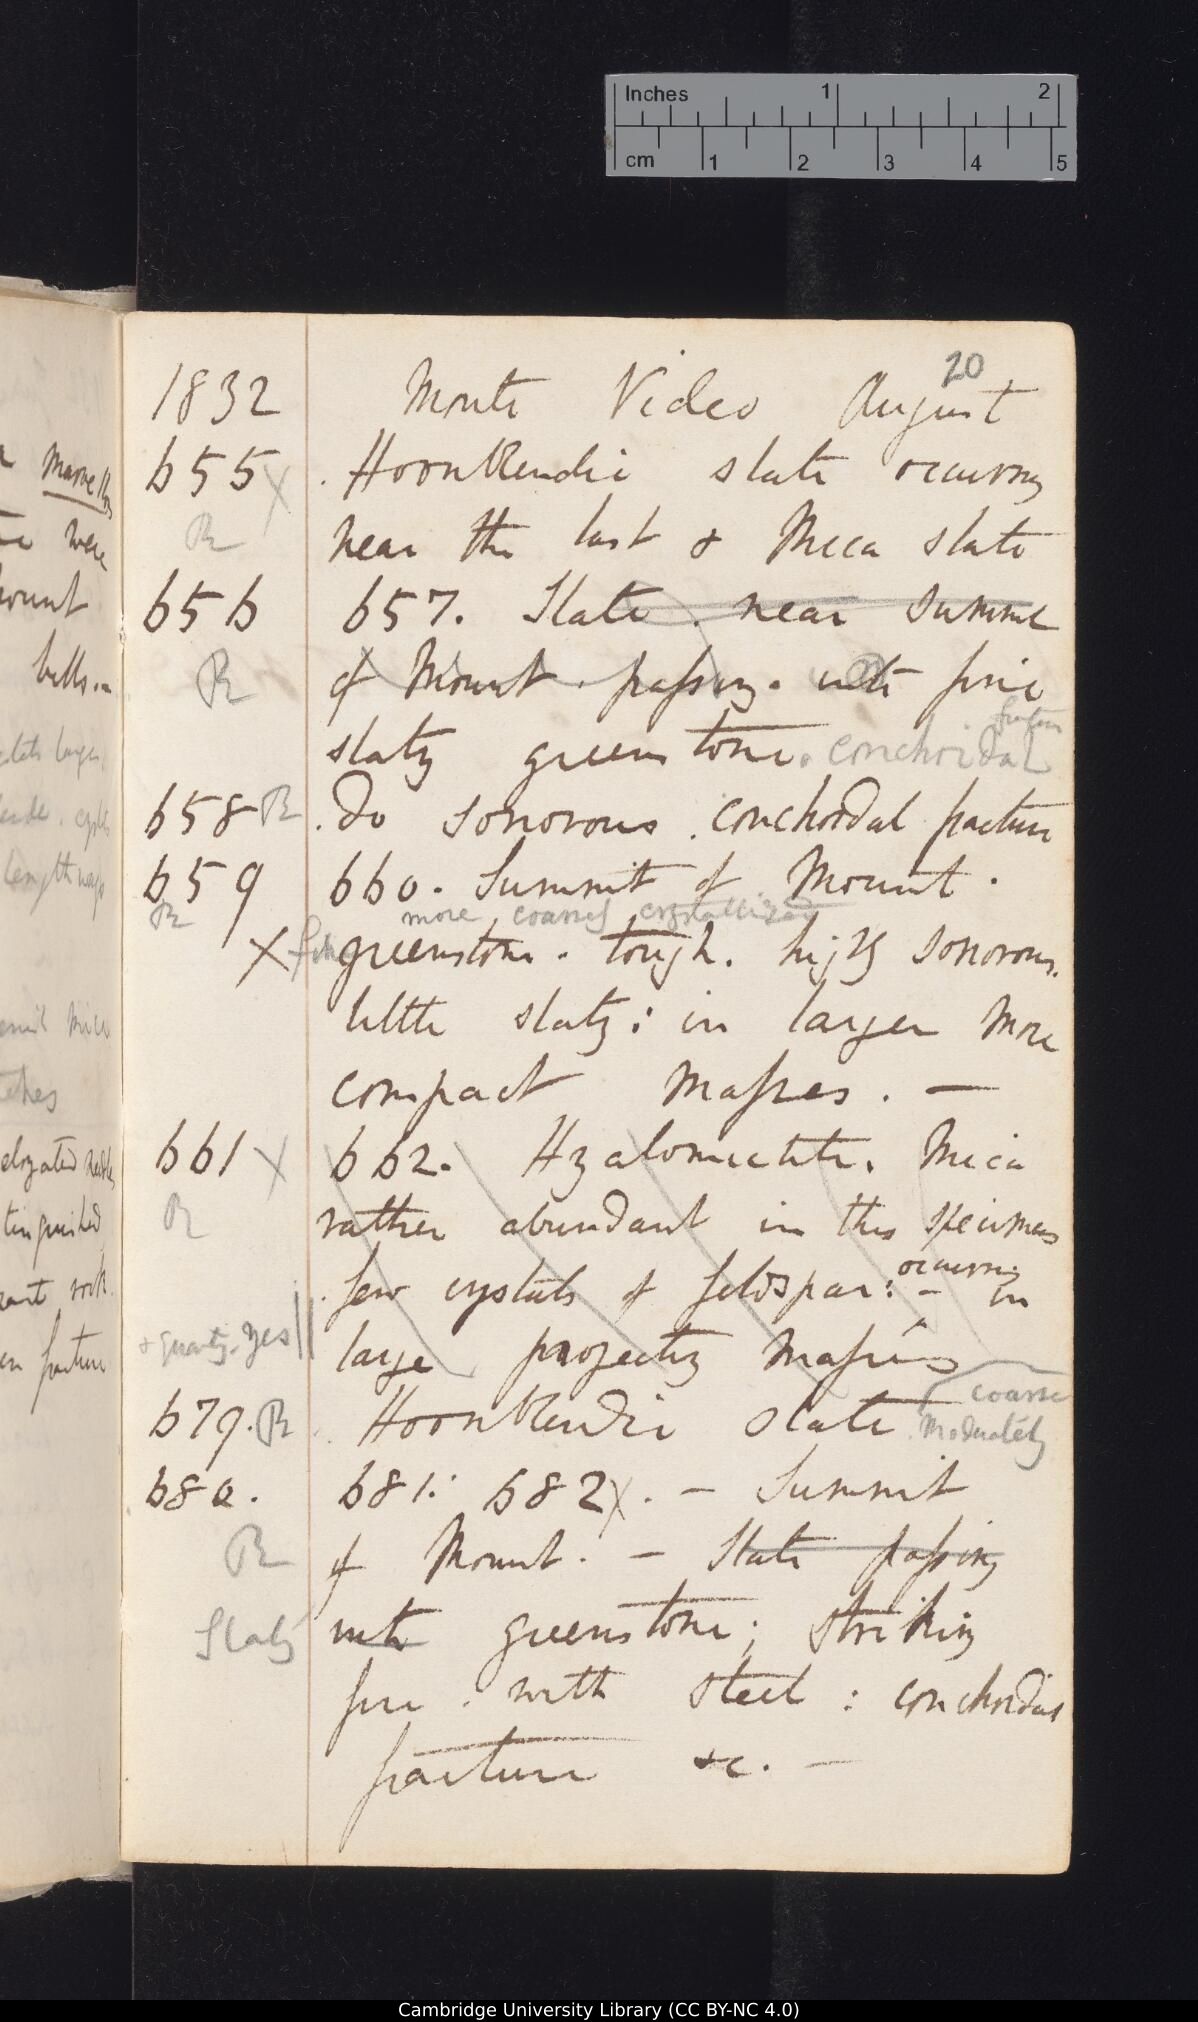 Inches 1 2
cm 1 2 3 4 5
20
1832 Monte Video August
655 X . Hornblendic slate occurring
R near the last & Mica slate
656 657. Slate. near summit
R of Mount. passing. into fine
fracture
slaty greenstone. conchoidal
658 R . Do sonorous. conchoidal fracture
659 660. Summit of Mount.
R more coarsely crystallized
X fine greenstone. tough. highly sonorous.
little slaty: in larger more
compact masses. —
661 X 662. Hyalomictite. Mica
R rather abundant in this specimens
. few crystals of feldspar: - occurring in
& quartz. yes large projecting masses
coarse
679. R . Hornblendic slate moderately
680. 681: 682 X. — Summit
R of Mount. — Slate passing
Slaty into greenstone; striking
fire. with steel: conchoidal
fracture &c. —
were
mount
hills.
Cambridge University Library (CC BY-NC 4.0)